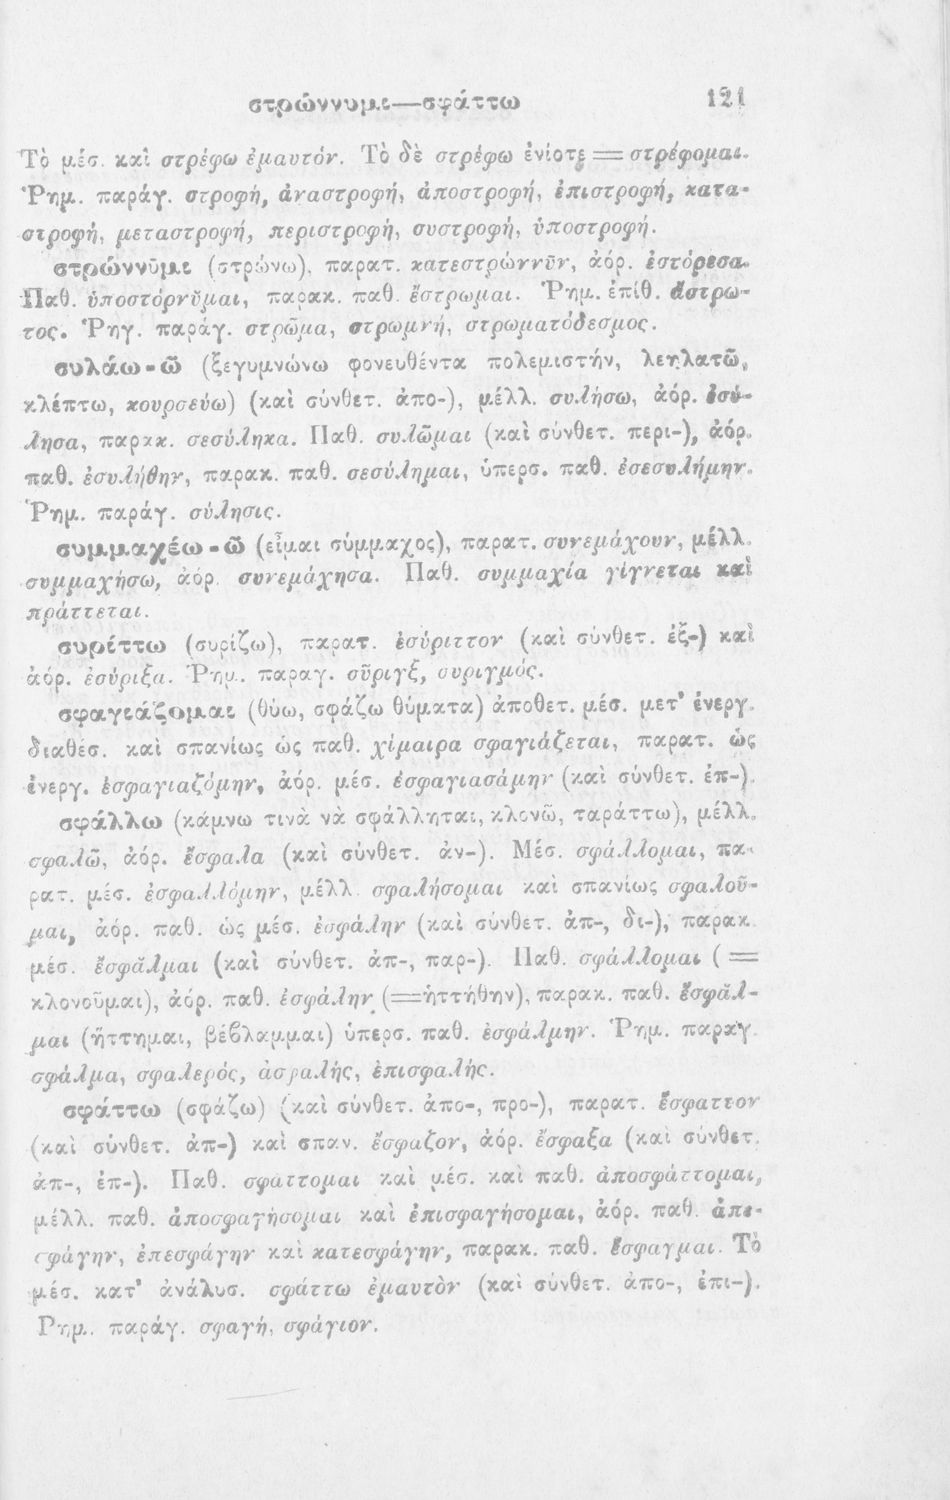 στρώννυμι—σφάττω 121
Τὸ μέσ. καὶ στρέφω ἐμαυτόν. Τὸ δὲ στρέφω ἐνίοτε = στρέφομαι.
Ῥημ. παράγ. στροφή, ἀναστροφή, ἀποστροφή, ἐπιστροφή, κατα-
στροφή, μεταστροφή, περιστροφή, συστροφή, ὑποστροφή.
στρώννῡμι (στρώνω), παρατ. κατεστρώννῡν, ἀόρ. ἐστόρεσα.
Παθ. ὑποστόρνῠμαι, παρακ. παθ. ἔστρωμαι. Ῥημ. ἐπίθ. ἄστρω-
τος. Ῥηγ. παράγ. στρῶμα, στρωμνή, στρωματόδεσμος.
συλάω-ῶ (ξεγυμνώνω φονευθέντα πολεμιστήν, λεηλατῶ,
κλέπτω, κουρσεύω) (καὶ σύνθετ. ἀπο-), μέλλ. συλήσω, ἀόρ. ἐσύ-
λησα, παρακ. σεσύληκα. Παθ. συλῶμαι (καὶ σύνθετ. περι-), ἀόρ.
παθ. ἐσυλήθην, παρακ. παθ. σεσύλημαι, ὑπερσ. παθ. ἐσεσυλήμην.
Ῥημ. παράγ. σύλησις.
συμμαχέω-ῶ (εἶμαι σύμμαχος), παρατ. συνεμάχουν, μέλλ.
συμμαχήσω, ἀόρ. συνεμάχησα. Παθ. συμμαχία γίγνεται καὶ
πράττεται.
συρίττω (συρίζω), παρατ. ἐσύριττον (καὶ σύνθετ. ἐξ-) καὶ
ἀόρ. ἐσύριξα. Ῥημ. παραγ. σῦριγξ, συριγμός.
σφαγιάζομαι (θύω, σφάζω θύματα) ἀποθετ. μέσ. μετ' ἐνεργ.
διαθέσ. καὶ σπανίως ὡς παθ. χίμαιρα σφαγιάζεται, παρατ. ὡς
ἐνεργ. ἐσφαγιαζόμην, ἀόρ. μέσ. ἐσφαγιασάμην (καὶ σύνθετ. ἐπ-).
σφάλλω (κάμνω τινὰ νὰ σφάλληται, κλονῶ, ταράττω), μέλλ.
σφαλῶ, ἀόρ. ἔσφαλα (καὶ σύνθετ. ἀν-). Μέσ. σφάλλομαι, πα-
ρατ. μέσ. ἐσφαλλόμην, μέλλ. σφαλήσομαι καὶ σπανίως σφαλοῦ-
μαι, ἀόρ. παθ. ὡς μέσ. ἐσφάλην (καὶ σύνθετ. ἀπ-, δι-), παρακ.
μέσ. ἔσφᾰλμαι (καὶ σύνθετ. ἀπ-, παρ-). Παθ. σφάλλομαι ( =
κλονοῦμαι), ἀόρ. παθ. ἐσφάλην (=ἡττήθην), παρακ. παθ. ἔσφᾰλ-
μαι (ἥττημαι, βέβλαμμαι) ὑπερσ. παθ. ἐσφάλμην. Ῥημ. παραγ.
σφάλμα, σφαλερός, ἀσφαλής, ἐπισφαλής.
σφάττω (σφάζω) (καὶ σύνθετ. ἀπο-, προ-), παρατ. ἔσφαττον
(καὶ σύνθετ. ἀπ-) καὶ σπαν. ἔσφαζον, ἀόρ. ἔσφαξα (καὶ σύνθετ.
ἀπ-, ἐπ-). Παθ. σφάττομαι καὶ μέσ. καὶ παθ. ἀποσφάττομαι,
μέλλ. παθ. ἀποσφαγήσομαι καὶ ἐπισφαγήσομαι, ἀόρ. παθ. ἀπε-
σφάγην, ἐπεσφάγην καὶ κατεσφάγην, παρακ. παθ. ἔσφαγμαι. Τὸ
μέσ. κατ' ἀνάλυσ. σφάττω ἐμαυτὸν (καὶ σύνθετ. ἀπο-, ἐπι-).
Ῥημ. παράγ. σφαγή, σφάγιον.